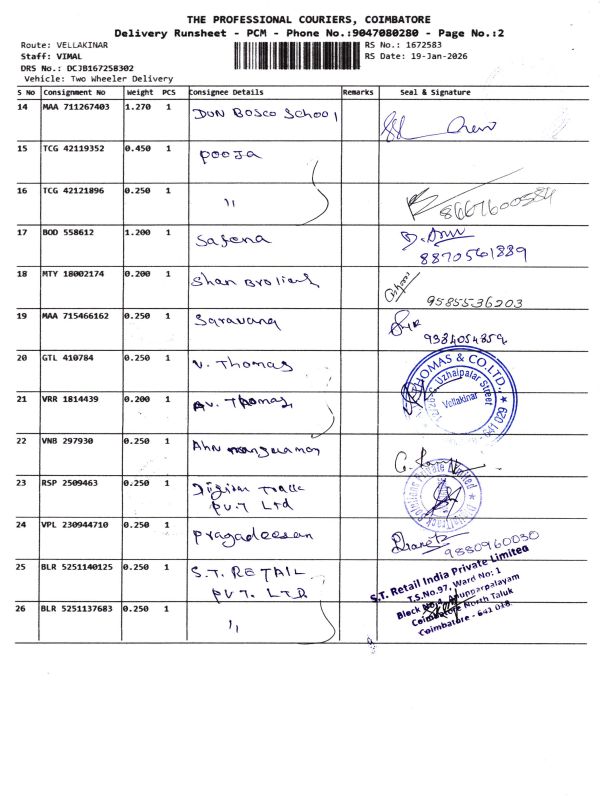 THE PROFESSIONAL COURIERS, COIMBATORE
Delivery Runsheet - PCM - Phone No.:9047080280 - Page No.:2
Route: VELLAKINAR
RS No.: 1672583
Staff: VIMAL
RS Date: 19-Jan-2026
DRS No.: DCJB1672583O2
Vehicle: Two Wheeler Delivery
S No Consignment No Weight PCS Consignee Details Remarks Seal & Signature
14 MAA 711267403 1.270 1 DON BOSCO SCHOOl
15 TCG 42119352 0.450 1 pooja
16 TCG 42121896 0.250 1 " 8667600584
17 BOD 558612 1.200 1 Safena
8870561889
18 MTY 18002174 0.200 1 Shan
9585536203
19 MAA 715466162 0.250 1 Saravana
9384054859
20 GTL 410784 0.250 1 V. Thomas
THOMAS & CO.LTD.
Uzhaipalar Street
Vellakinar
641 029
21 VRR 1814439 0.200 1 AV. Thomas
22 VNB 297930 0.250 1
23 RSP 2509463 0.250 1
PVT Ltd
Solutions Private Limited
24 VPL 230944710 0.250 1 Pragadeesan
9880960030
25 BLR 5251140125 0.250 1 S.T. RETAIL
PVT. LTD
S.T. Retail India Private Limited
T.S.No.97, Ward No: 1
Block Anupparpalayam
Coimbatore North Taluk
Coimbatore - 641 018.
26 BLR 5251137683 0.250 1 "